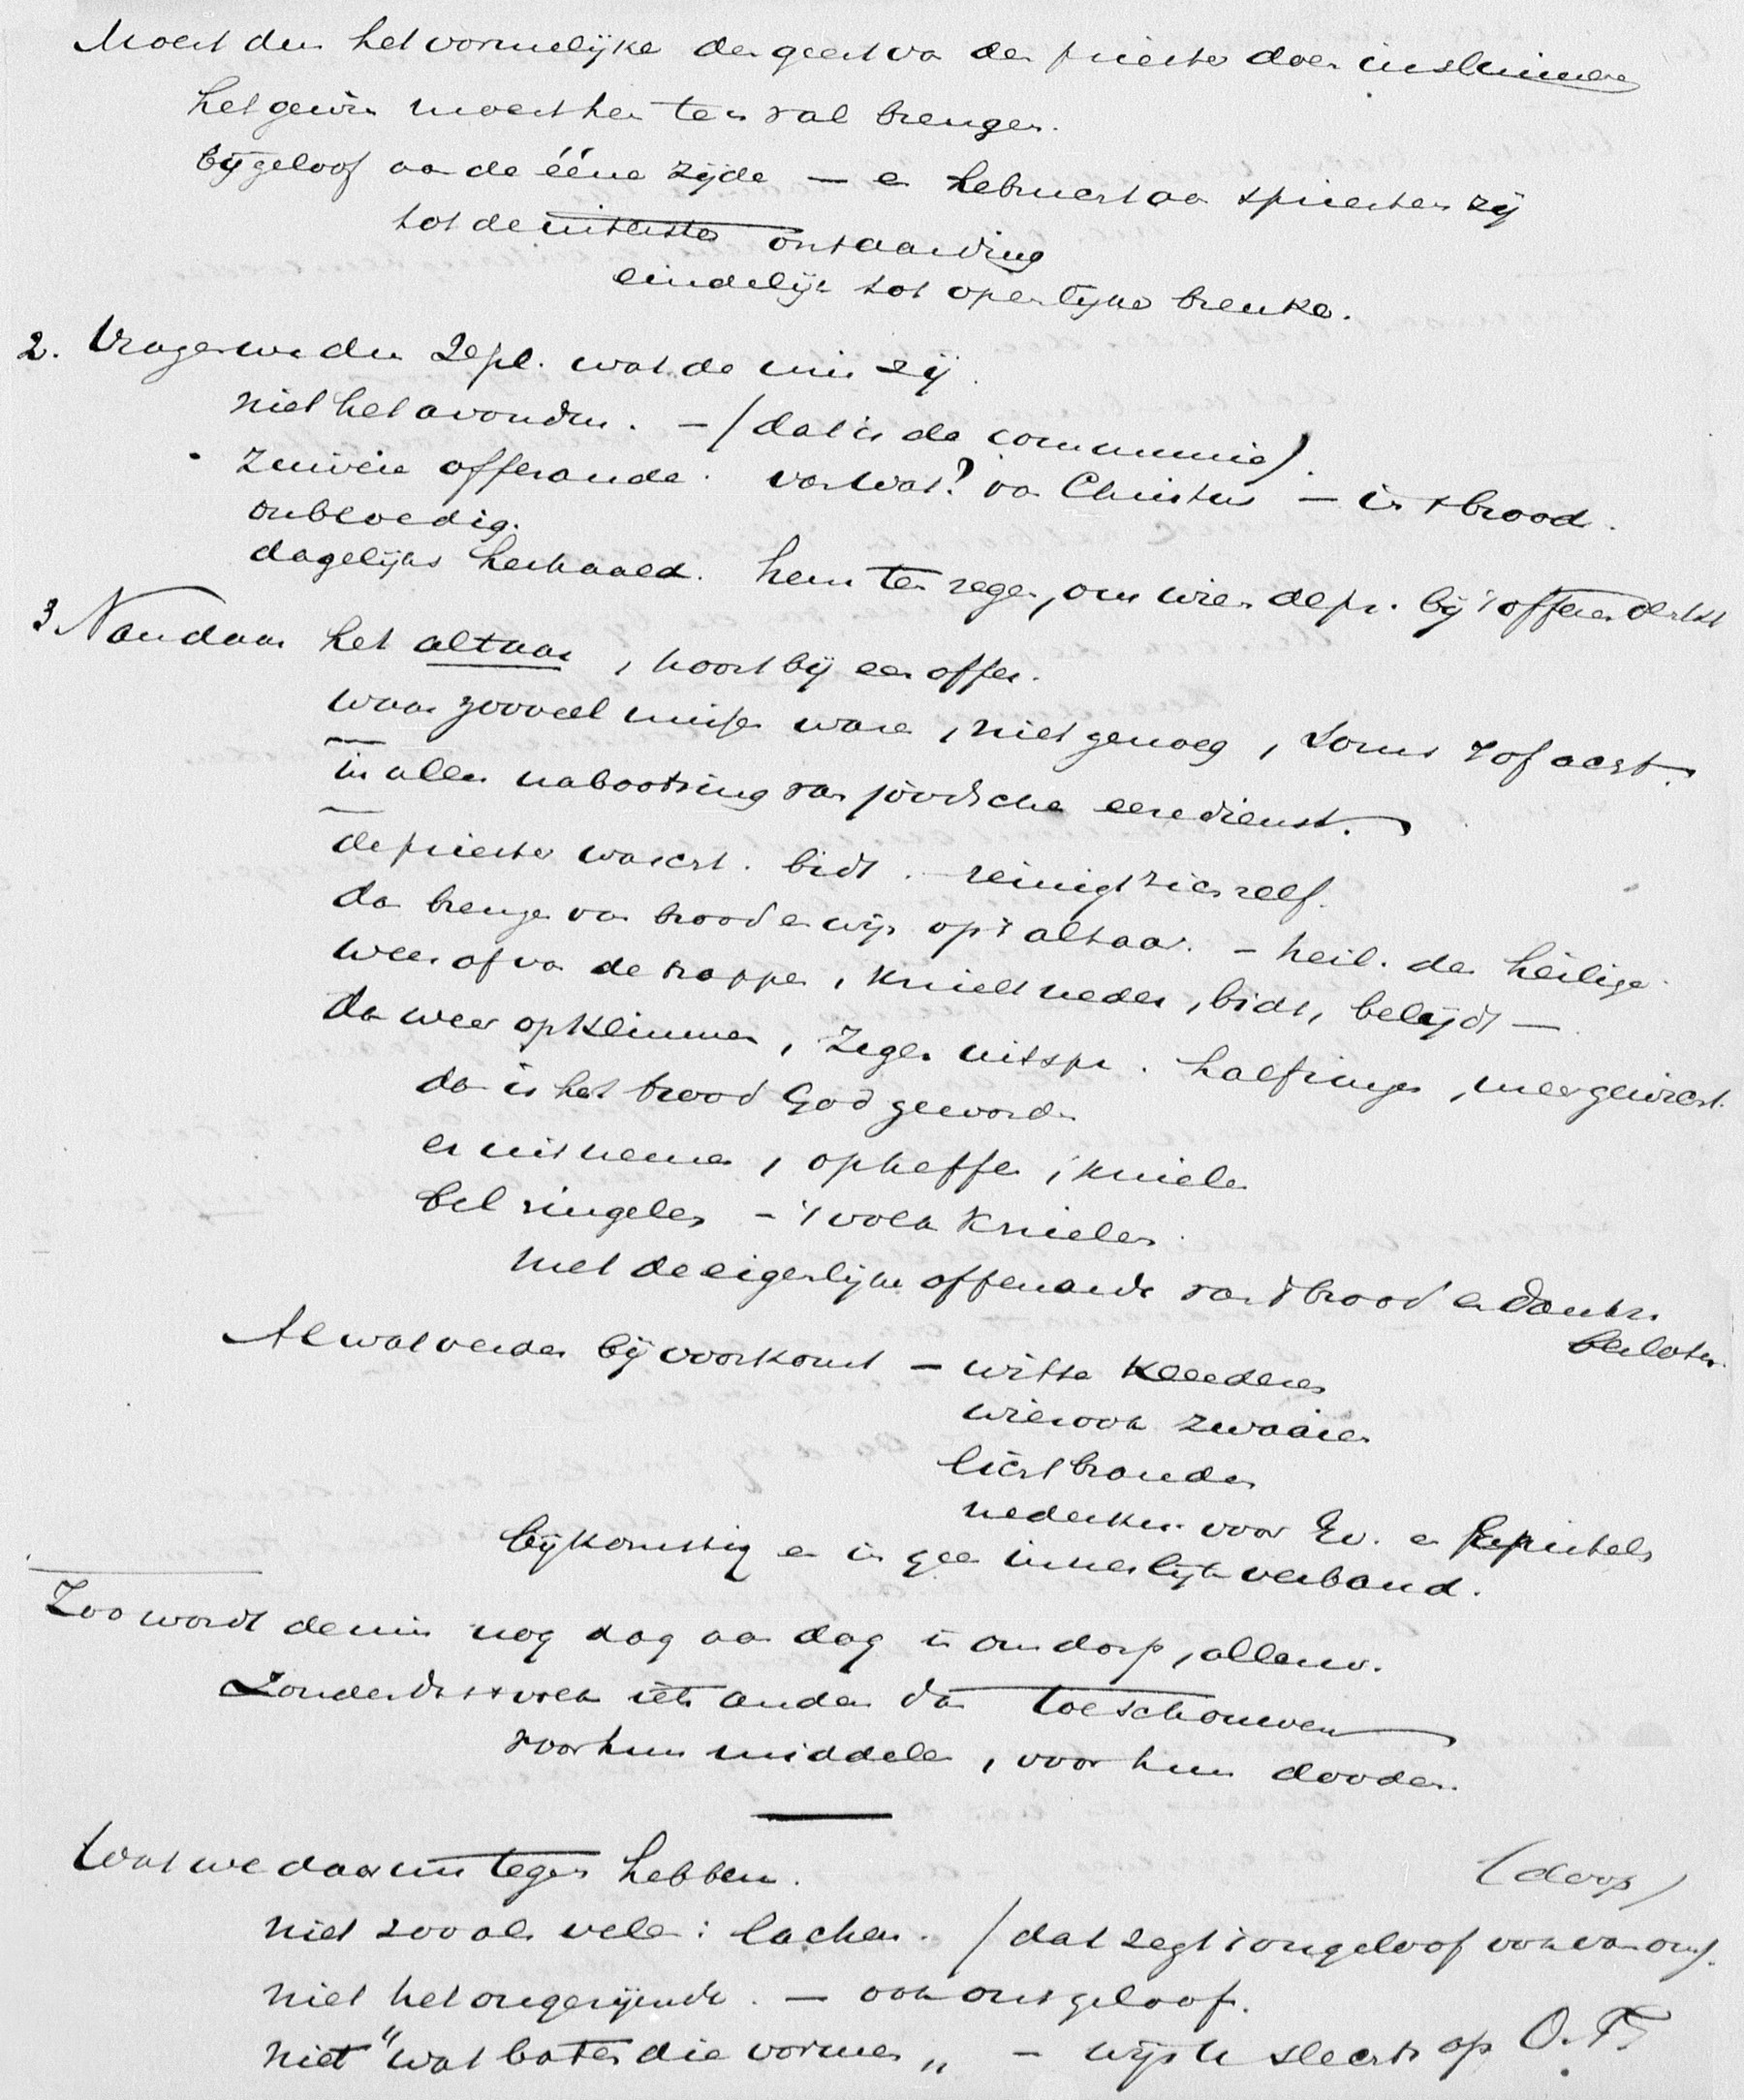 Moest dus het vormelijke den geest van den priester doen insluimeren
het gewin moest hen ten val brengen.
bijgeloof aan de ééne zijde — en hebzucht aan 't priesters zij
tot de uiterste ontaarding
eindelijk tot openlijke breuke.
2. Vragen we dus 2e pl. wat de mis zij.
niet het avondm. — (dat is de communie).
zuivere offerande. van wat? van Christus — in 't brood.
onbloedig.
dagelijks herhaald. hem ten zegen, om wien de pr. bij 't offeren denkt
3 Vandaar het altaar, hoort bij een offer.
waar zooveel missen waren, niet genoeg, soms 7 of acht.
in alles nabootsing van joodsche eeredienst.
de priester wascht. bidt. reinigt zich zelf.
dan brengen van brood en wijn op 't altaar. — heil. der heilige.
weer af van de trappen, knielt neder, bidt, belijdt —
dan weer opklimmen, Zegen uitspr.
dan is het brood God geworden
en uitnemen, opheffen, knielen
bel ringelen — 't volk knielen.
met de eigenlijke offerande van 't brood en dankz.
besloten.
Al wat verder bij voorkomt — witte kleederen
wierook zwaaien
licht branden
voor Ev. en
bijkomstig en in geen innerlijk verband.
Zoo wordt de mis nog dag aan dag in ons dorp, allerw.
Zonder dat 't volk iets anders dan toeschouwen
voor hun middelen, voor hun dooden.
Wat we daar nu tegen hebben.
(doop)
niet zooals velen: lachen. (dat zegt 't ongeloof ook van ons).
niet het ongerijmde. — ook ons geloof.
niet "wat baten die vormen" — wijs ik slechts op O.T.